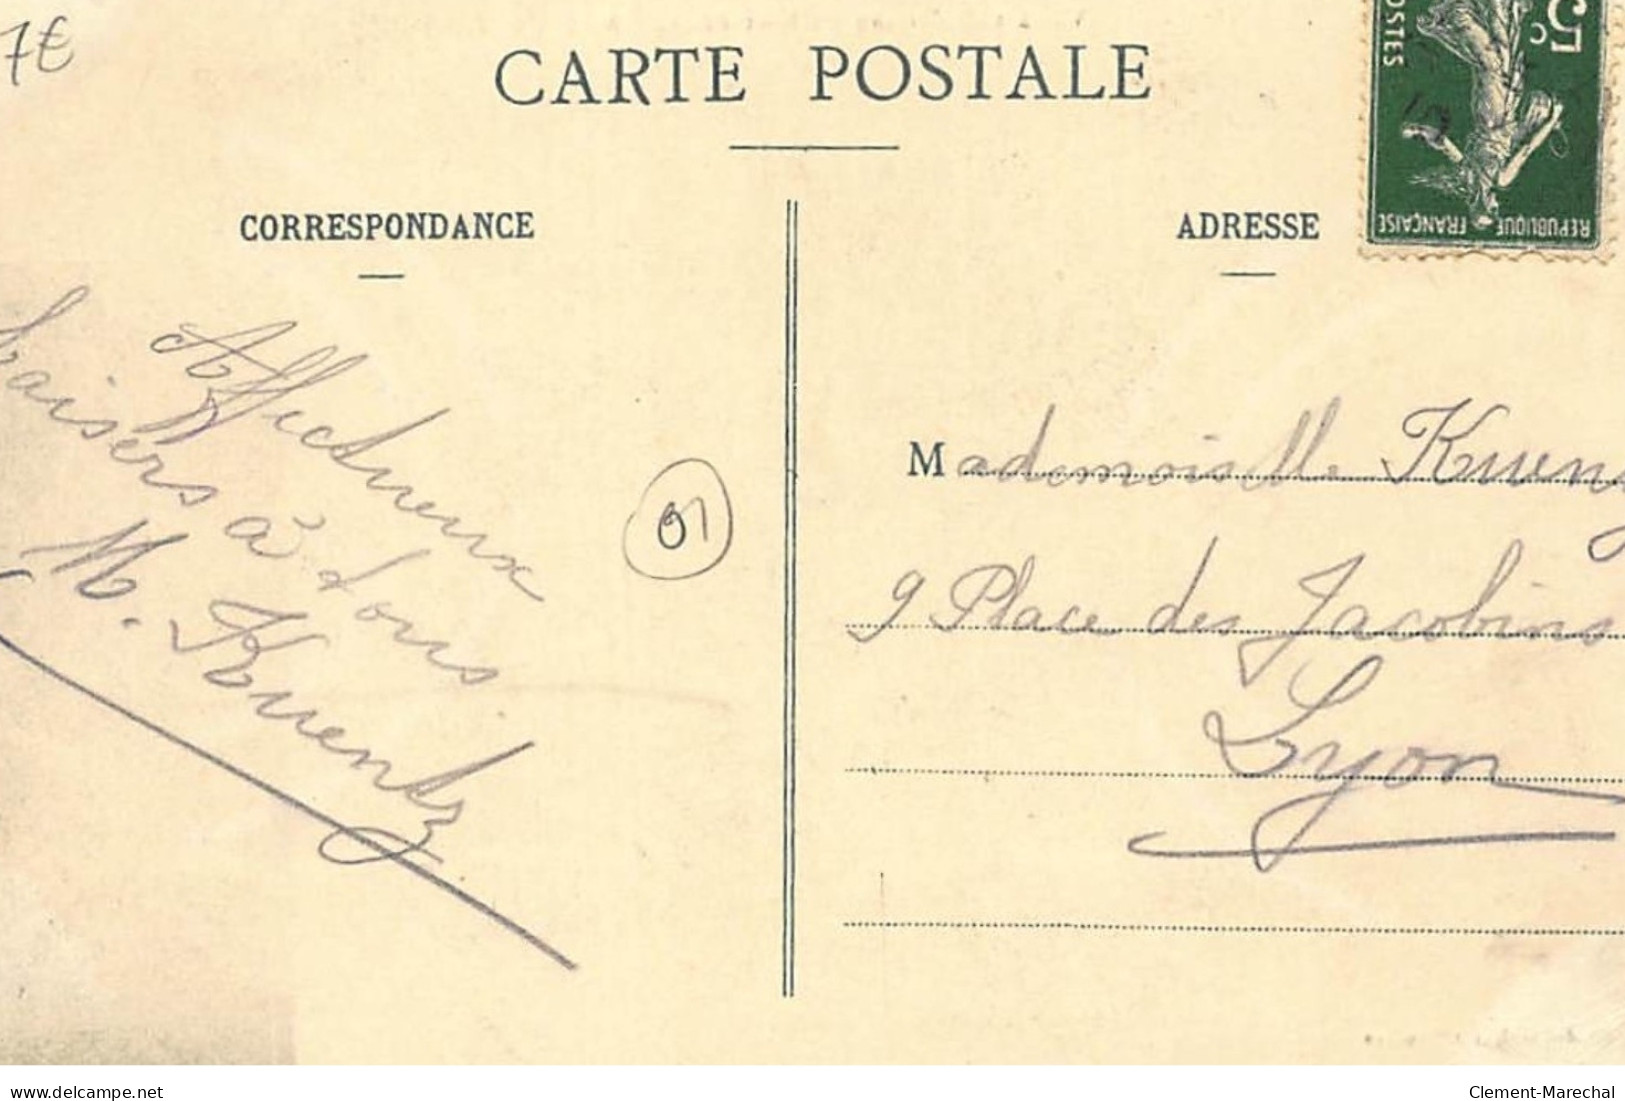 7€
CARTE POSTALE
CORRESPONDANCE
ADRESSE
5c
POSTES
REPUBLIQUE FRANÇAISE
Affectueux
baisers à tous
M. Kuentz
01
Mademoiselle
9 Place des Jacobins
Lyon
delcampe.net
Clement-Marechal